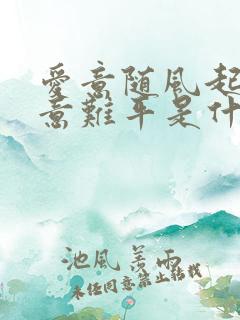 愛意随風起
意難平是什
池風善雨
未经同意禁止转载